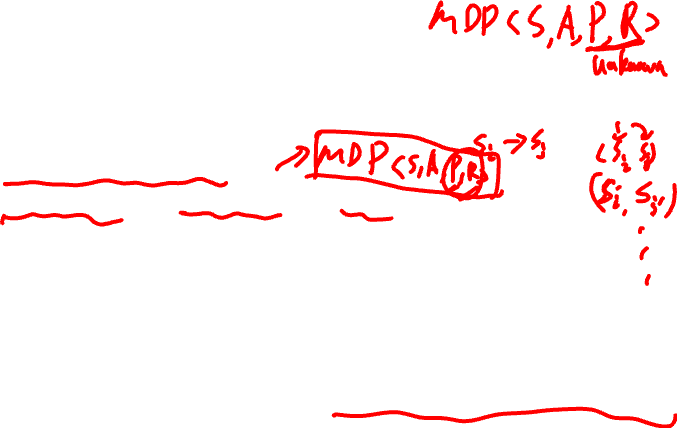 MDP<S,A,P,R>
unknown
→ MDP<S,A,P,R> Si → Sj
(Si, Sj)